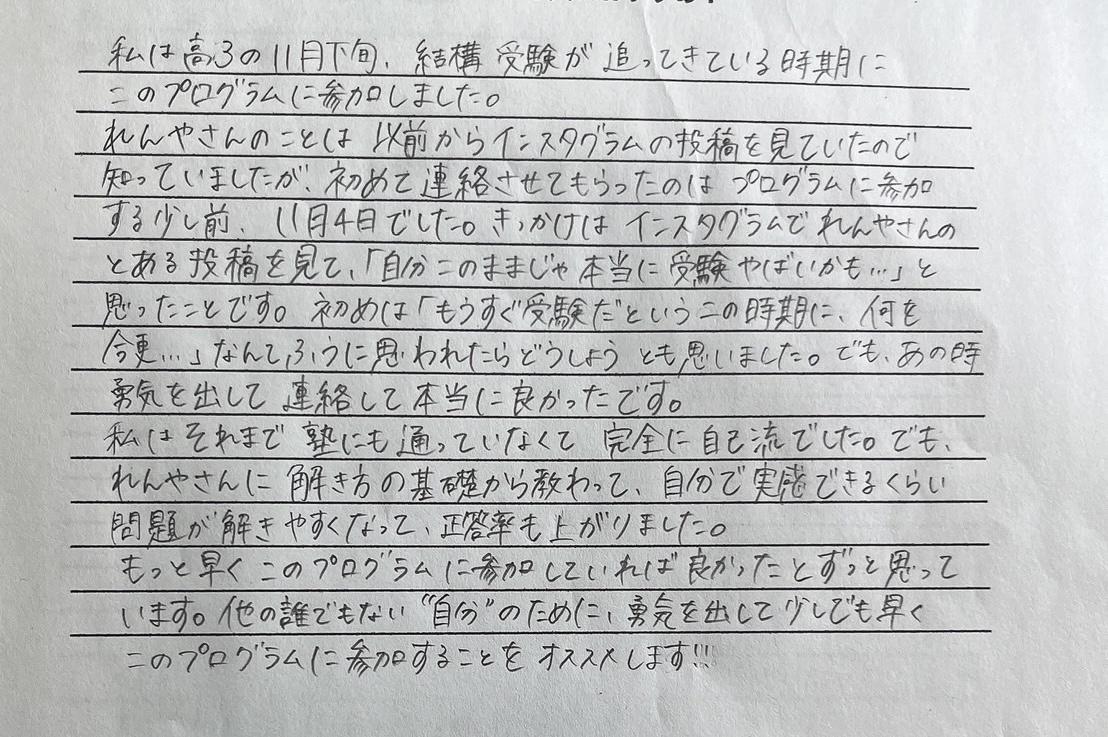 私は高3の11月下旬、結構 受験が 追ってきている時期に
このプログラムに参加しました。
れんやさんのことは 以前からインスタグラムの投稿を見ていたので
知っていましたが、初めて連絡させてもらったのは プログラムに参加
する少し前、11月4日でした。きっかけは インスタグラムで れんやさんの
とある投稿を見て、「自分このままじゃ本当に受験やばいかも…」と
思ったことです。初めは「もうすぐ受験だ"というこの時期に、何を
今更…」なんてふうに思われたらどうしようとも思いました。でも、あの時
勇気を出して 連絡して本当に良かったです。
私はそれまで 塾にも通っていなくて 完全に自己流でした。でも、
れんやさんに 解き方の基礎から教わって、自分で実感できるくらい
問題が解きやすくなって、正答率も上がりました。
もっと早く このプログラムに参加していれば良かったとずっと思って
います。他の誰でもない"自分"のために、勇気を出して少しでも早く
このプログラムに参加することを オススメします!!!